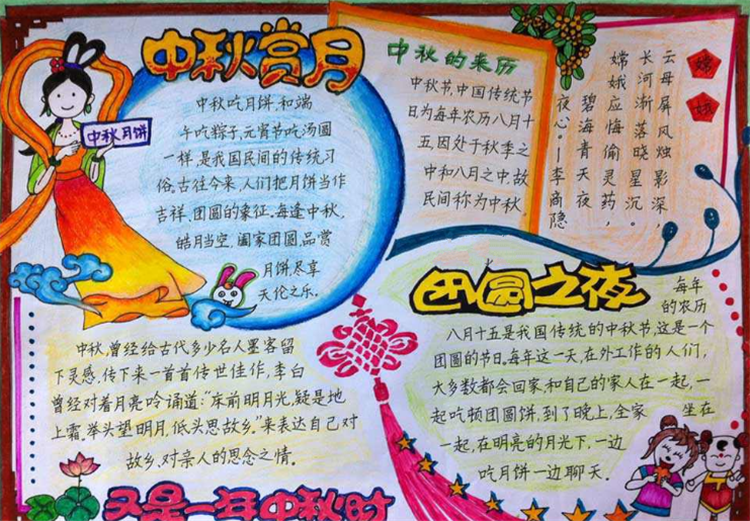 中秋赏月
中秋月饼
中秋吃月饼,和端
午吃粽子,元宵节吃汤圆
一样,是我国民间的传统习
俗,古往今来,人们把月饼当作
吉祥、团圆的象征,每逢中秋,
皓月当空,阖家团圆,品赏
月饼,尽享
天伦之乐。
中秋的来历
中秋节,中国传统节
日为每年农历八月十
五,因处于秋季之
中和八月之中,故
民间称为中秋。
嫦
娥
云母屏风烛影深,
长河渐落晓星沉。
嫦娥应悔偷灵药,
碧海青天夜
夜心。——李商隐
中秋,曾经给古代多少名人墨客留
下灵感,传下来一首首传世佳作,李白
曾经对着月亮吟诵道:“床前明月光,疑是地
上霜,举头望明月,低头思故乡。”来表达自己对
故乡,对亲人的思念之情。
团圆之夜
每年
的农历
八月十五是我国传统的中秋节,这是一个
团圆的节日,每年这一天,在外工作的人们,
大多数都会回家,和自己的家人在一起,一
起吃顿团圆饼,到了晚上,全家 坐在
一起,在明亮的月光下,一边
吃月饼一边聊天。
又是一年中秋时